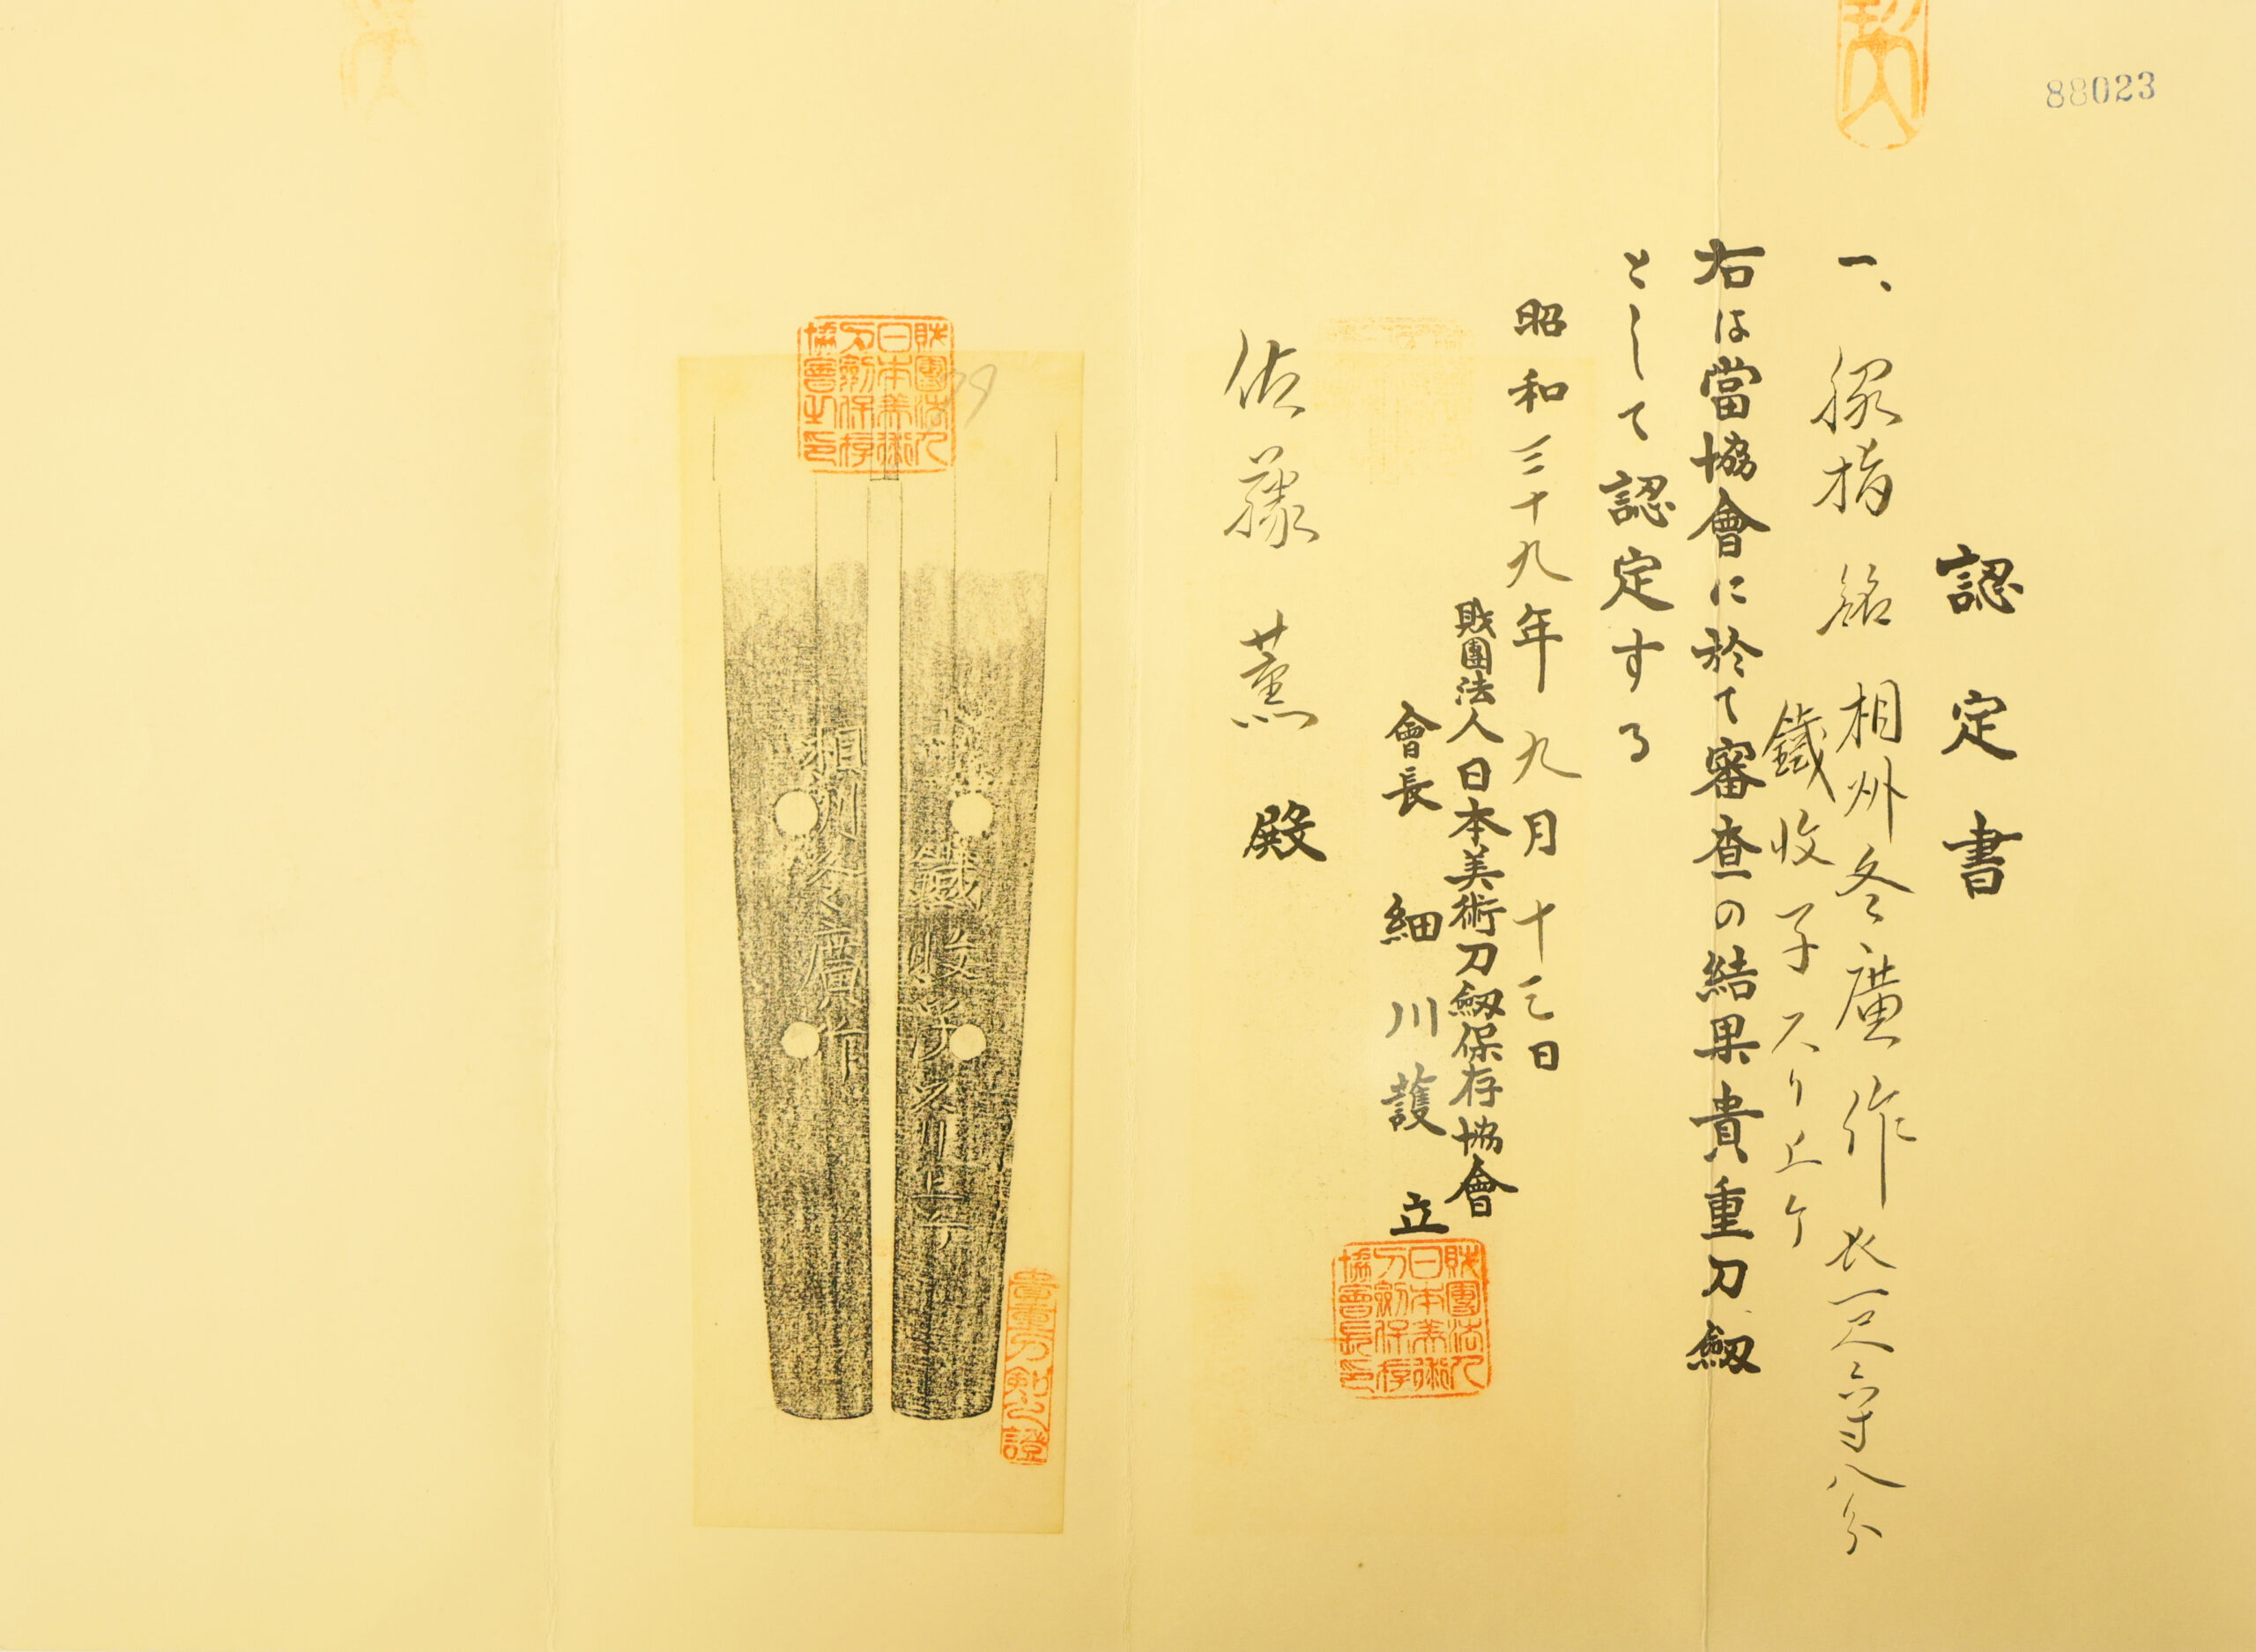 88023
認定書
一、脇指 銘 相州冬廣作 長一尺六寸八分
鐵收子スリ上ケ
右は當協會に於て審査の結果貴重刀劔
として認定する
昭和三十九年九月十三日
財團法人日本美術刀劔保存協會
會長 細川護立
財團法人日本美術刀劍保存協會長印
佐藤薫殿
財團法人日本美術刀劍保存協會之印
相州冬廣作
貴重刀剣之證